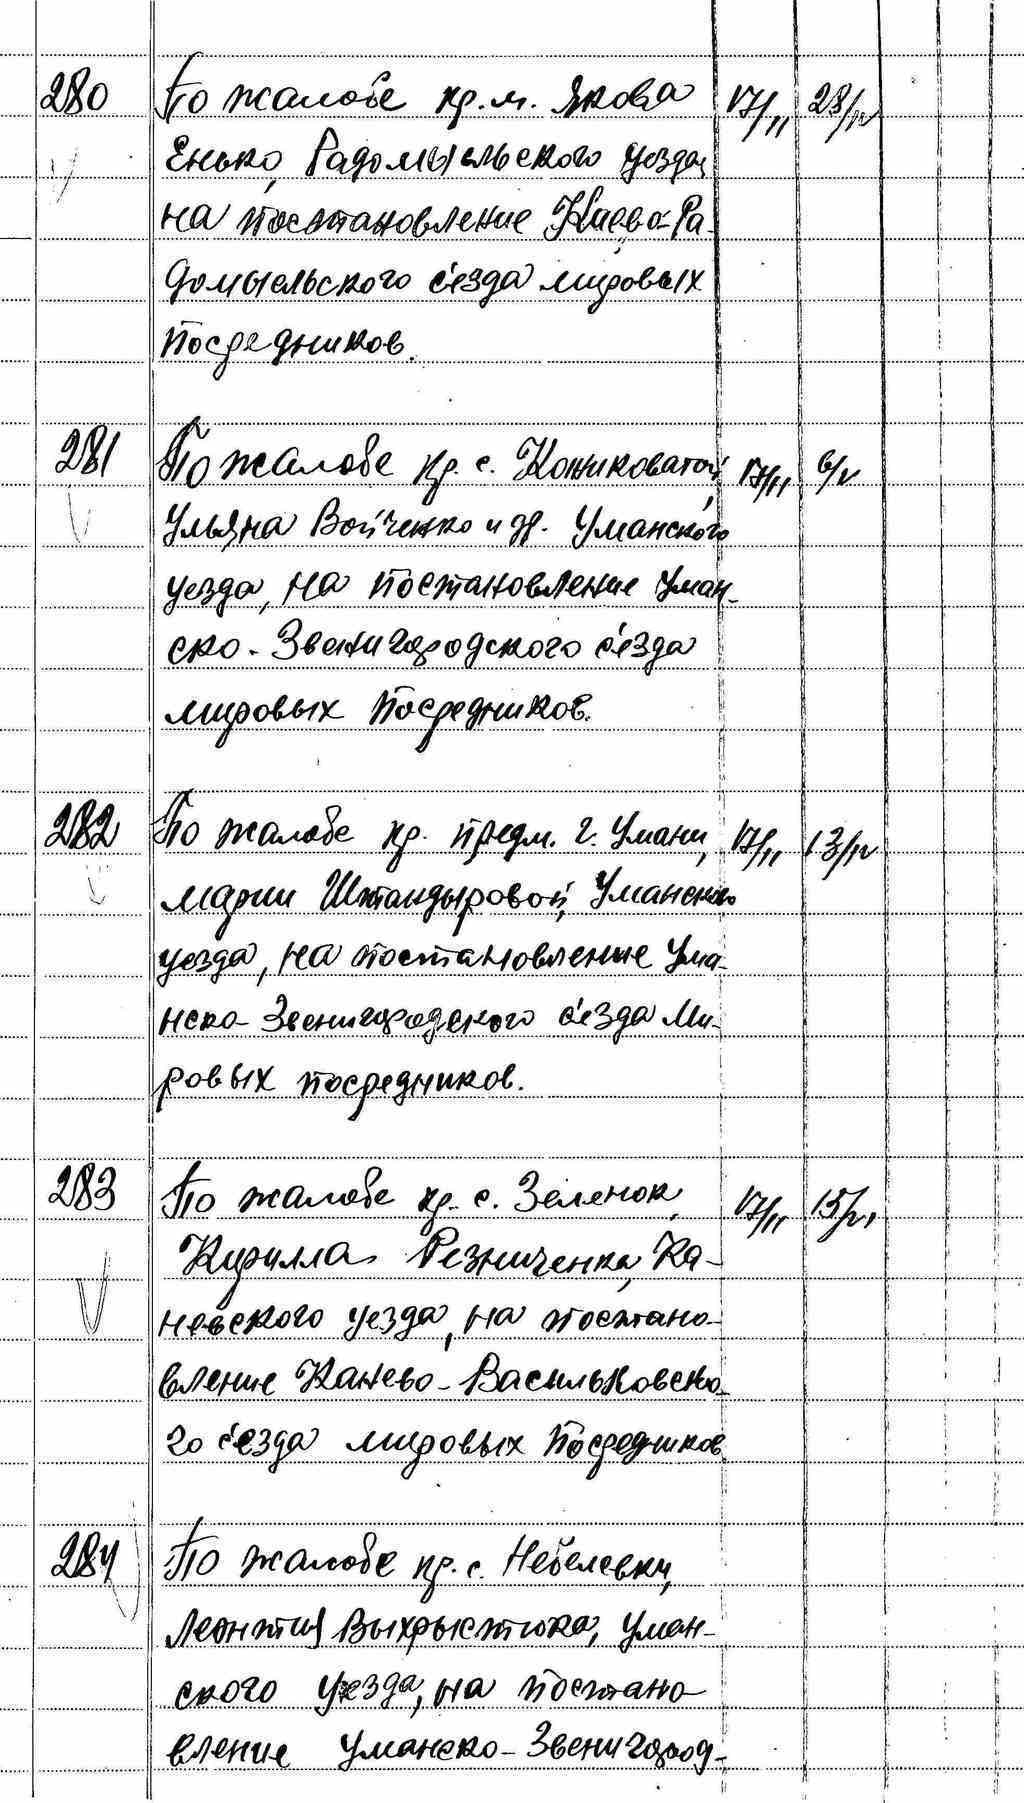 280 По жалобе кр. м. Якова 17/II 28/IV
Енько, Радомысльского уезда,
на постановление Киево-Ра-
домысльского с'езда мировых
посредников.
281 По жалобе кр. с. Кожиковатой, 17/II 6/V
Ульяна Войченко и др. Уманского
уезда, на постановление Уман-
ско-Звенигородского с'езда
мировых посредников.
282 По жалобе кр. предм. г. Умани, 17/II 13/IV
Марии Штандыровой, Уманского
уезда, на постановление Ума-
нско-Звенигородского с'езда Ми-
ровых посредников.
283 По жалобе кр. с. Зеленок, 17/II
Кирилла Резниченка, Ка-
невского уезда, на постано-
вление Канево-Васильковско-
го с'езда мировых посредников
284 По жалобе кр. с. Небелевки,
Леонтия Выхрыстюка, Уман-
ского уезда, на постано
вление Уманско-Звенигород-